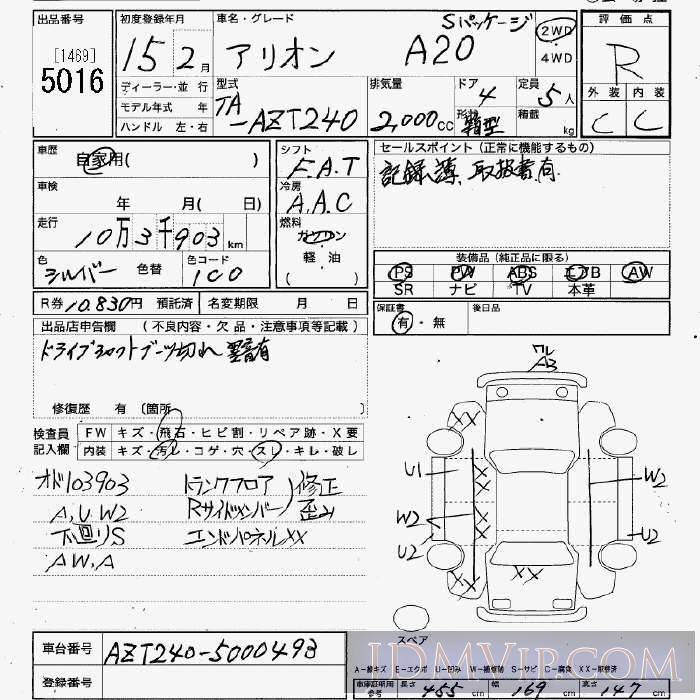 出品番号 初度登録年月 車名・グレード 評価点
[1469]
5016
15 2月 アリオン A20 Sパッケージ 2WD・4WD R
ディーラー・並行
モデル年式 年
ハンドル 左・右
型式 TA-AZT240
排気量 2,000cc
ドア 4
形状 箱型
定員 5人
積載 kg
外装 内装
C C
車歴 自家用( )
車検 年 月( 日)
走行 10万3千903km
色 シルバー 色替 色コード 1C0
シフト F.A.T
冷房 A.A.C
燃料 ガソリン
軽・油
( )
セールスポイント(正常に機能するもの)
記録簿、取扱書有
装備品(純正品に限る)
PS PW ABS エアB AW
SR ナビ TV 本革
R券 10,830円 預託済 名変期限 月 日
保証書 有・無 後日品
出品店申告欄 (不良内容・欠品・注意事項等記載)
ドライブシャフトブーツ切れ 異音有
修復歴 有 (箇所
検査員記入欄
FW キズ・飛石・ヒビ割・リペア跡・X要
内装 キズ・汚レ・コゲ・穴・スレ・キレ・破レ
オド103903 トランクフロア
A,U,W2 Rサイドメンバー)修正 歪み
下廻りS エンドパネルXX
AW.A
ワレ
A3
XX
U1 X X W2
W2 X X
U2 U2
XX XX
スペア
車台番号 AZT240-5000493
登録番号
A-線キズ E-エクボ U-凹み W-補修跡 S-サビ C-腐食 XX-取替済
車庫証明用参考 長さ 455cm 幅 169cm 高さ 147cm
IDMVIP.COM